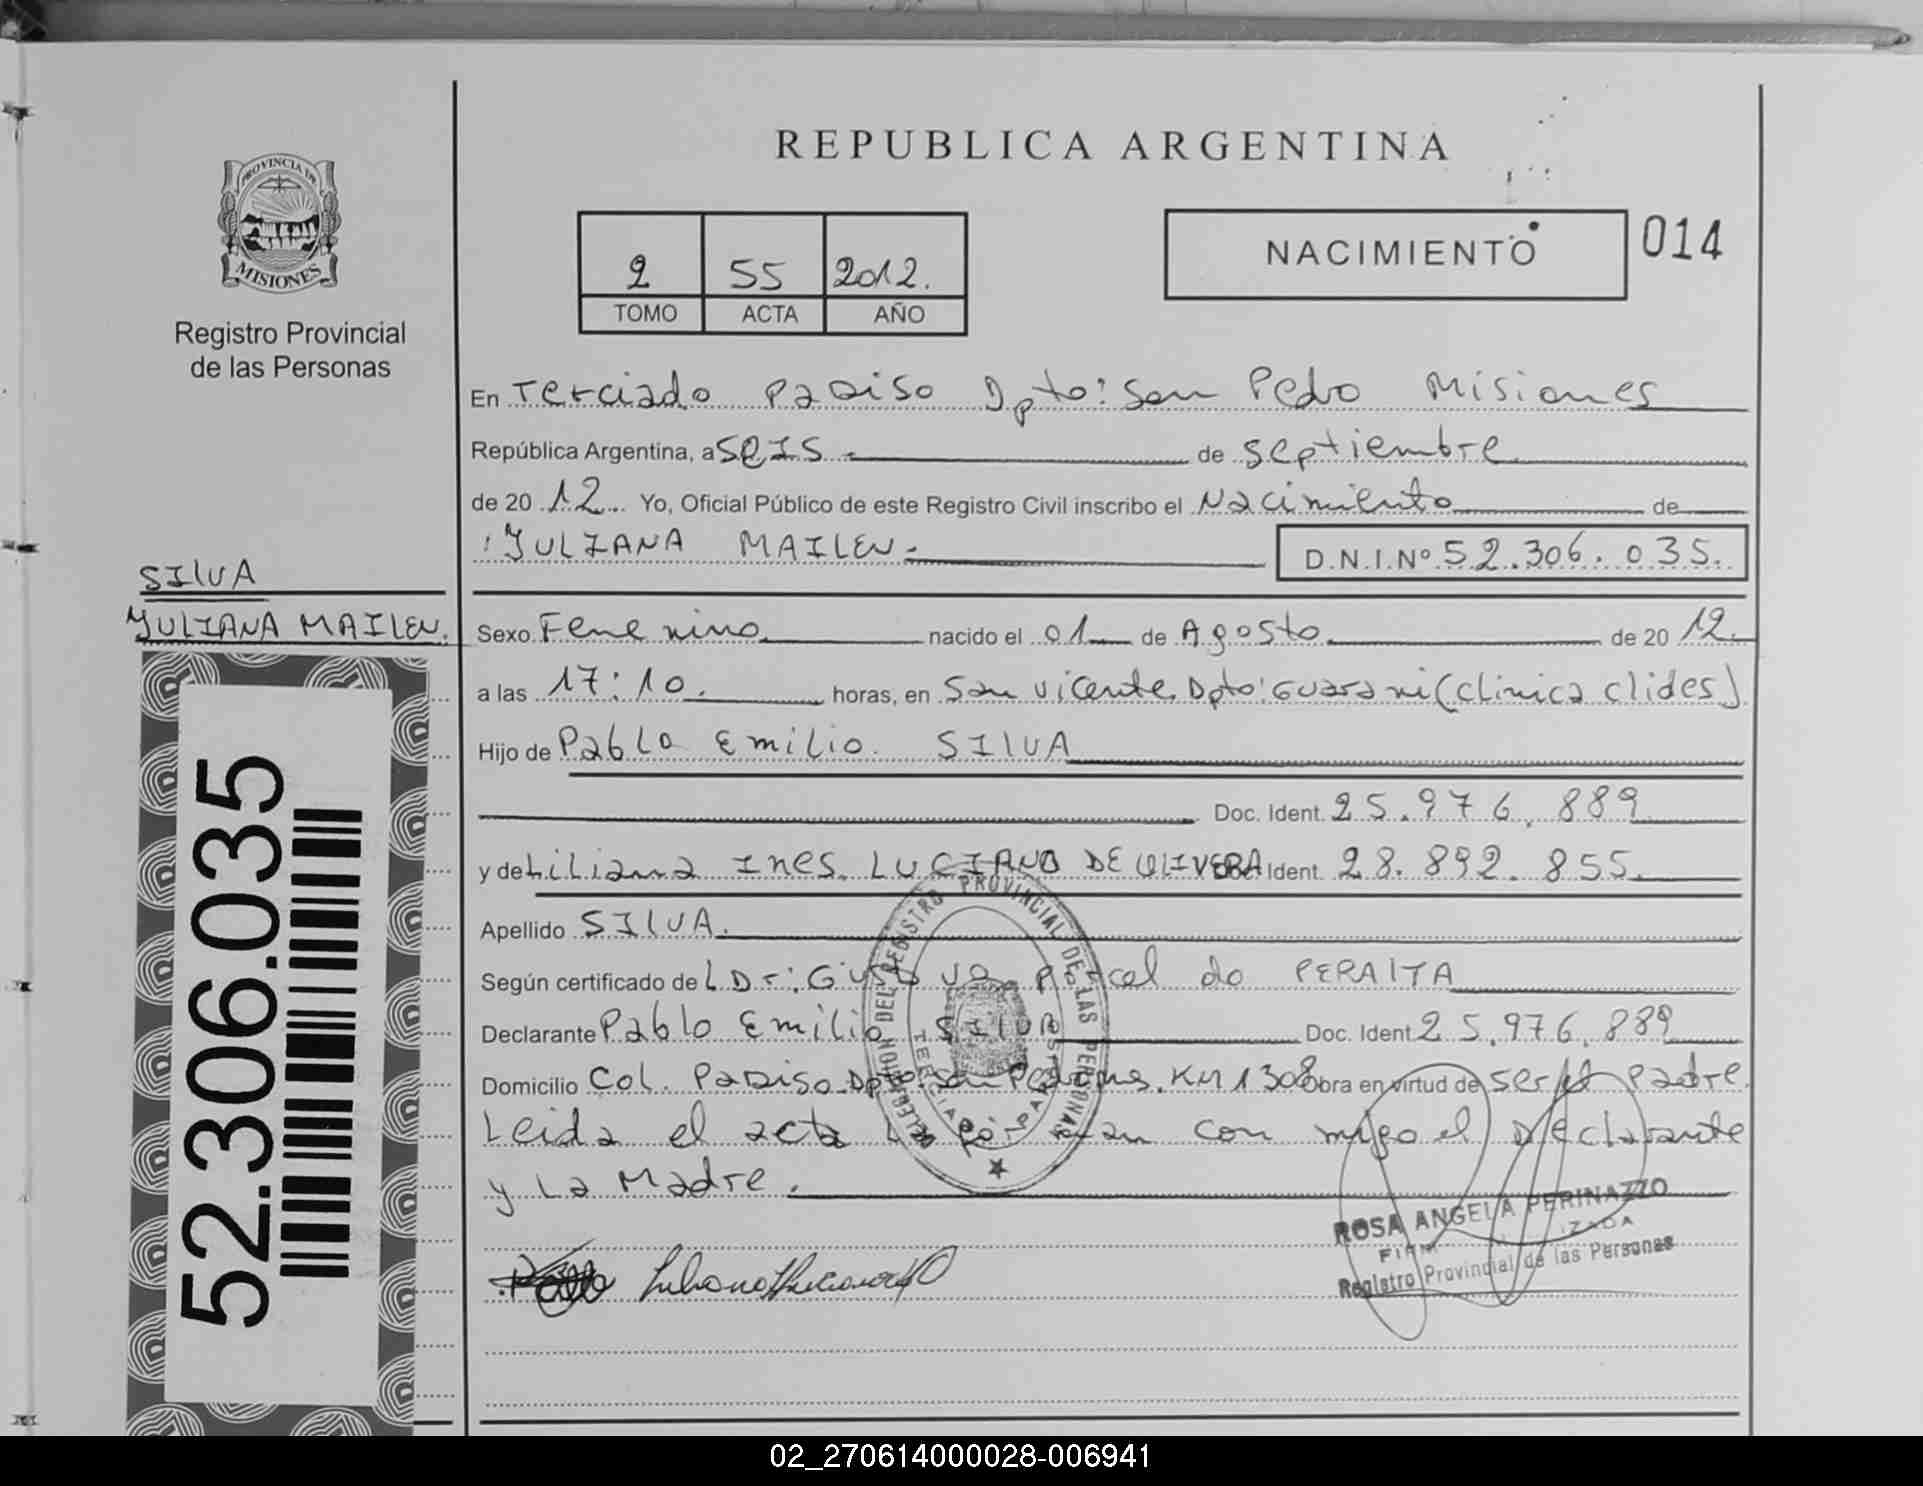 REPUBLICA ARGENTINA
PROVINCIA DE
MISIONES
Registro Provincial
de las Personas
2 55 2012.
TOMO ACTA AÑO
NACIMIENTO 014
En Terciado Paraiso Dpto: San Pedro Misiones
República Argentina, a SeIS.- de septiembre
de 20 12 Yo, Oficial Público de este Registro Civil inscribo el Nacimiento de
YULIANA MAILEN.- D.N.I.Nº 52.306.035.
SILVA
YULIANA MAILEN.
Sexo Femenino nacido el 01 de Agosto de 20 12.
a las 17:10. horas, en San Vicente, Dpto: Guarani (clinica clides)
Hijo de Pablo Emilio. SILVA
Doc. Ident. 25.976.889
y de Liliana Ines. LUCIANO DE OLIVERA Ident. 28.892.855.
Apellido SILVA.
Según certificado de L Dr: de PERALTA
Declarante Pablo Emilio SILVA Doc. Ident. 25.976.889
Domicilio Col. Paraiso. Dpto. San Pedro Ms. KM 1308 obra en virtud de ser el padre
Leida el acta la firman con migo el Declarante
y La Madre.
DELEGACION DEL REGISTRO PROVINCIAL DE LAS PERSONAS
TERCIADO PARAISO
ROSA ANGELA PERINAZZO
Registro Provincial de las Personas
Pablo
52.306.035
02_270614000028-006941